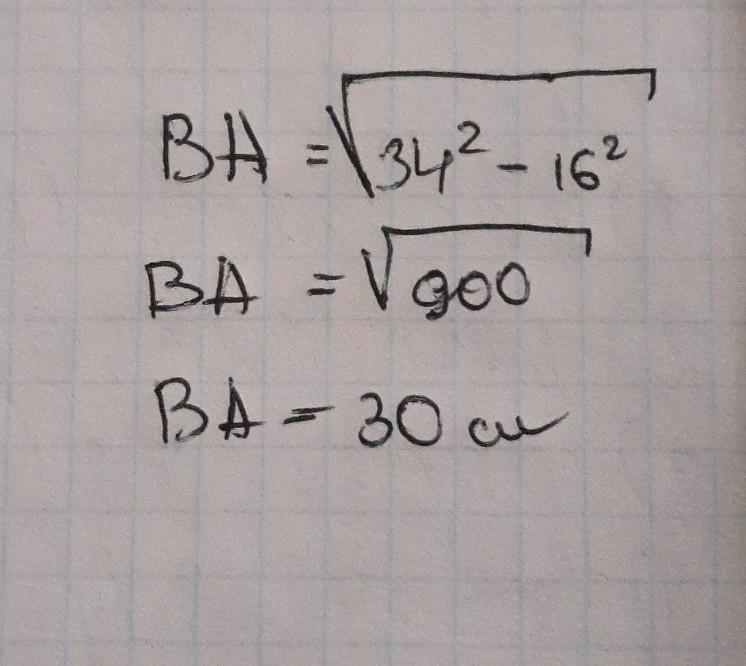 BA = √34² - 16²
BA = √900
BA = 30 cm